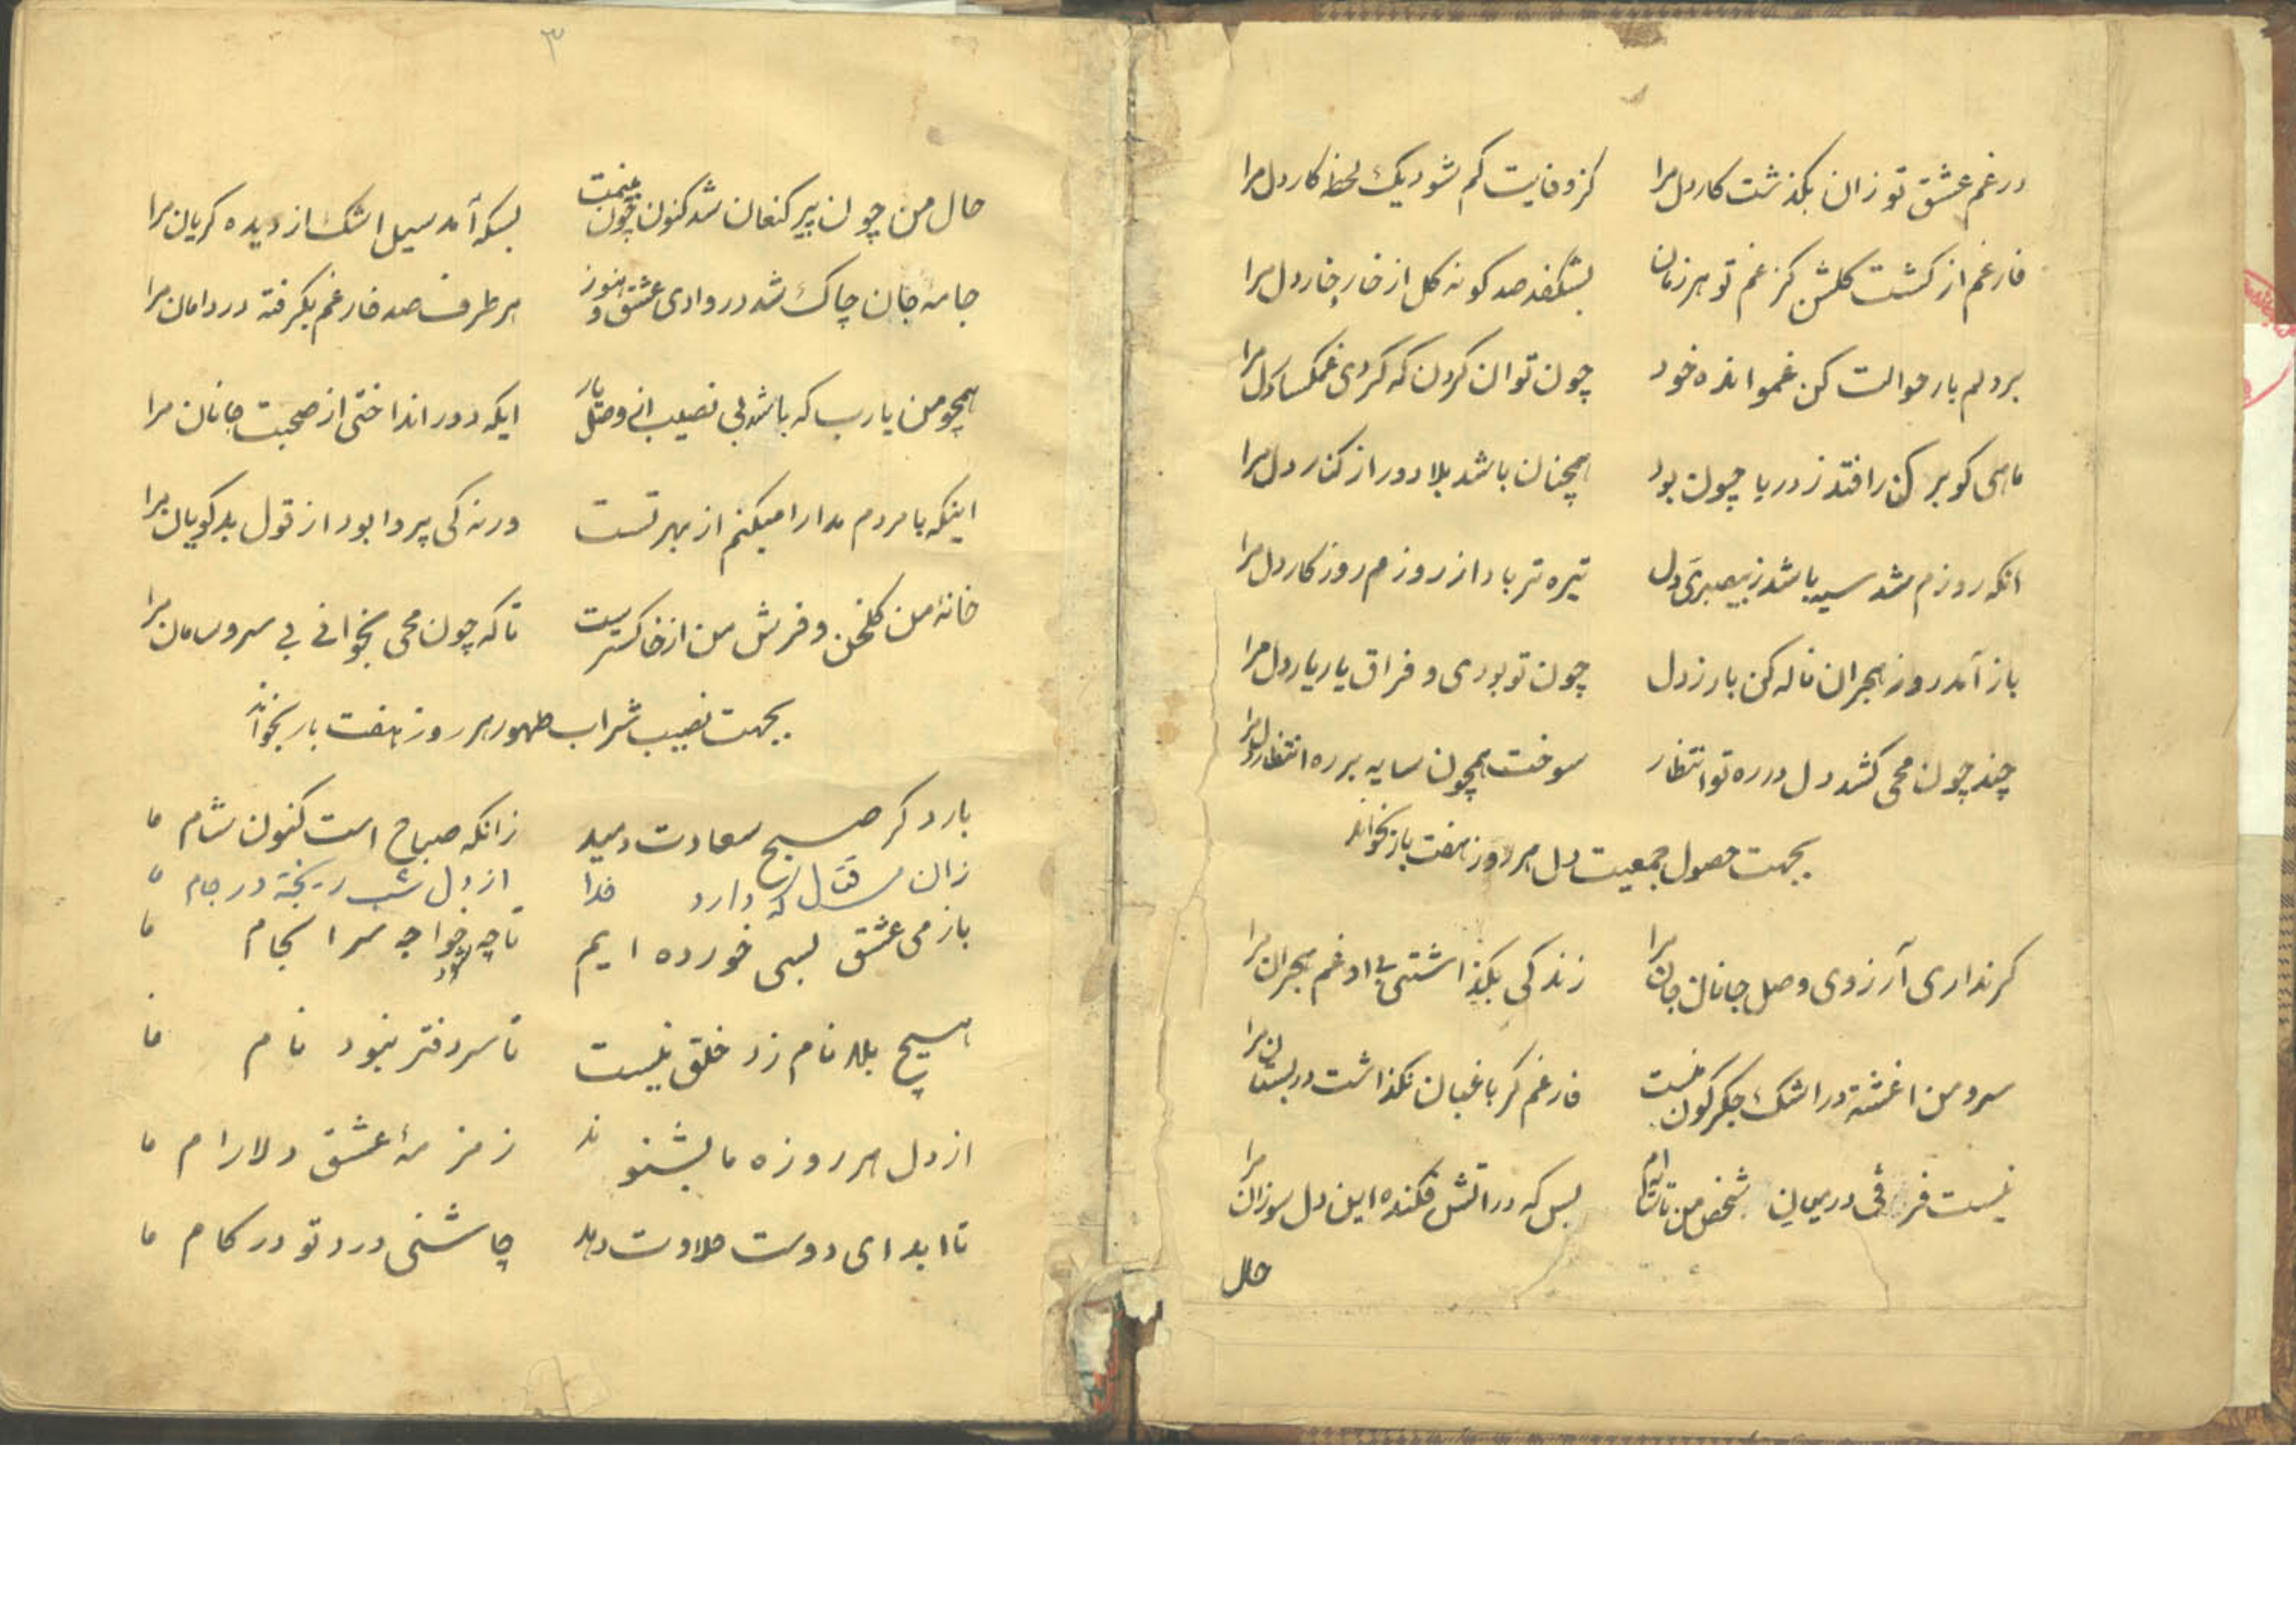 در غم عشق تو زان بگذشت کار دل مرا کز وفایت کم شود یک لحظه کار دل مرا
فارغم از کشت کلشن کز غم تو هر زمان بشکفد صد کونه کل از خار خار دل مرا
بر دلم بار حوالت کن غم و اندوه خود چون توان کردن که کردی غمکسار دل مرا
ماهی کو بر کنار افتد ز دریا چون بود همچنان باشد بلا دور از کنار دل مرا
انکه روزم شد سیه باشد ز بیصبری دل تیره تر باد از روزم روزکار دل مرا
باز آمد روز هجران ناله کن بار ز دل چون تو بودی و فراق یار یار دل مرا
چند چون محی کشد دل در ره تو انتظار سوخت همچون سایه بر ره انتظار دل مرا
بجهت حصول جمعیت دل هر روز هفت بار بخواند
کر نداری آرزوی وصل جانان جان مرا زندکی بکذاشتی بی او غم هجران مرا
سرو من اغشته در اشک جکرکون منست خار غم کر باغبان نکذاشت در بستان مرا
نیست فرقی در میان شخص من تا بس که در اتش فکنده این دل سوزان مرا
حال
۳
حال من چون پیر کنعان شد کنون چون بینمت بسکه آمد سیل اشک از دیده کریان مرا
جامه جان چاک شد در وادی عشق و هنوز هر طرف صد خار غم بکرفته در دامان مرا
همچو من یا رب که باشد بی نصیب از وصل یار ایکه دور انداختی از صحبت جانان مرا
اینکه با مردم مدارا میکنم از بهر تست ورنه کی پروا بود از قول بدکویان مرا
خانه من کلخن و فرش من از خاکسترست تا که چون محی بخوانی بی سر و سامان مرا
بجهت نصیب شراب طهور هر روز هفت بار بخواند
بار دکر صبح سعادت دمید زانکه صباح است کنون شام ما
زان می که دارد خدا از دل شب ریخته در جام ما
باز می عشق بسی خورده ایم تا چه بود خواجه سرانجام ما
هیچ بلا نامزد خلق نیست تا سر دفتر نبود نام ما
از دل هر روزه ما بشنوند زمزمه عشق دلارام ما
تا ابد ای دوست حلاوت دهد چاشنی درد تو در کام ما